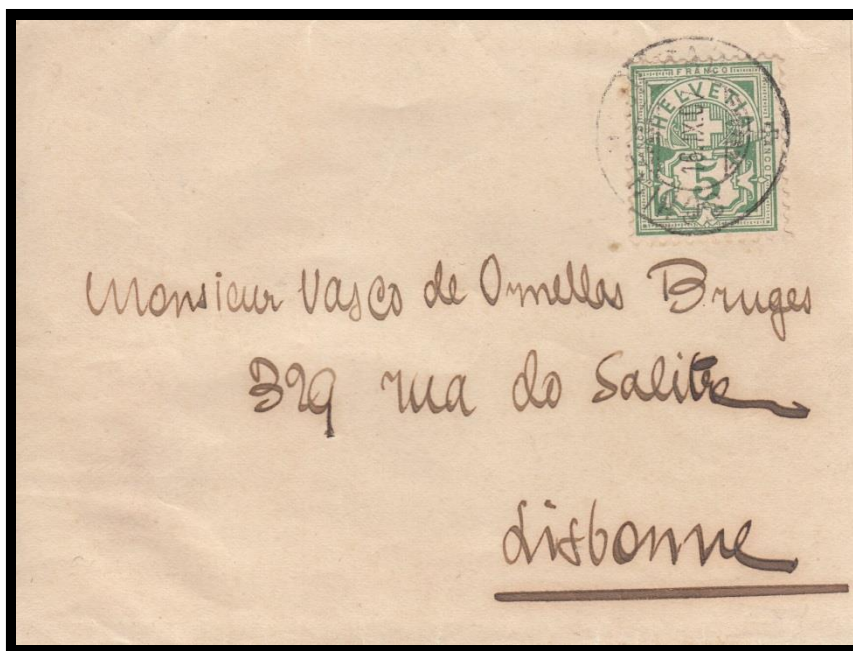 FRANCO
HELVETIA
FRANCO
5
Monsieur Vasco de Ornellas Bruges
329 rua do Salitre
Lisbonne